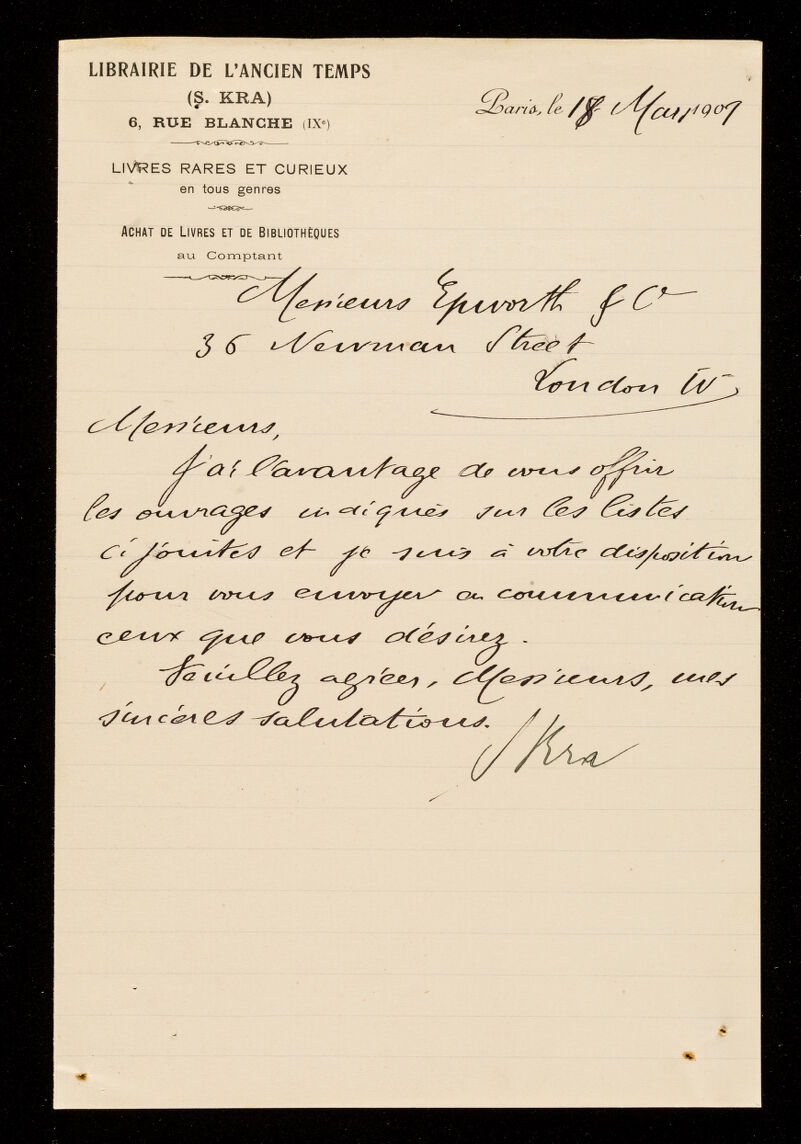 LIBRAIRIE DE L'ANCIEN TEMPS
(S. KRA)
6, RUE BLANCHE (IXe)
LIVRES RARES ET CURIEUX
en tous genres
ACHAT DE LIVRES ET DE BIBLIOTHÈQUES
au Comptant
Paris, le 18 Mars 1909
Messieurs Epworth & Co
36 Newman Street
London W
Messieurs,
J'ai l'avantage de vous offrir
les ouvrages indiqués sur les listes
ci jointes et je suis à votre disposition
pour vous envoyer en communication
ceux que vous désirez.
Veuillez agréer, Messieurs, mes
sincères salutations.
S Kra